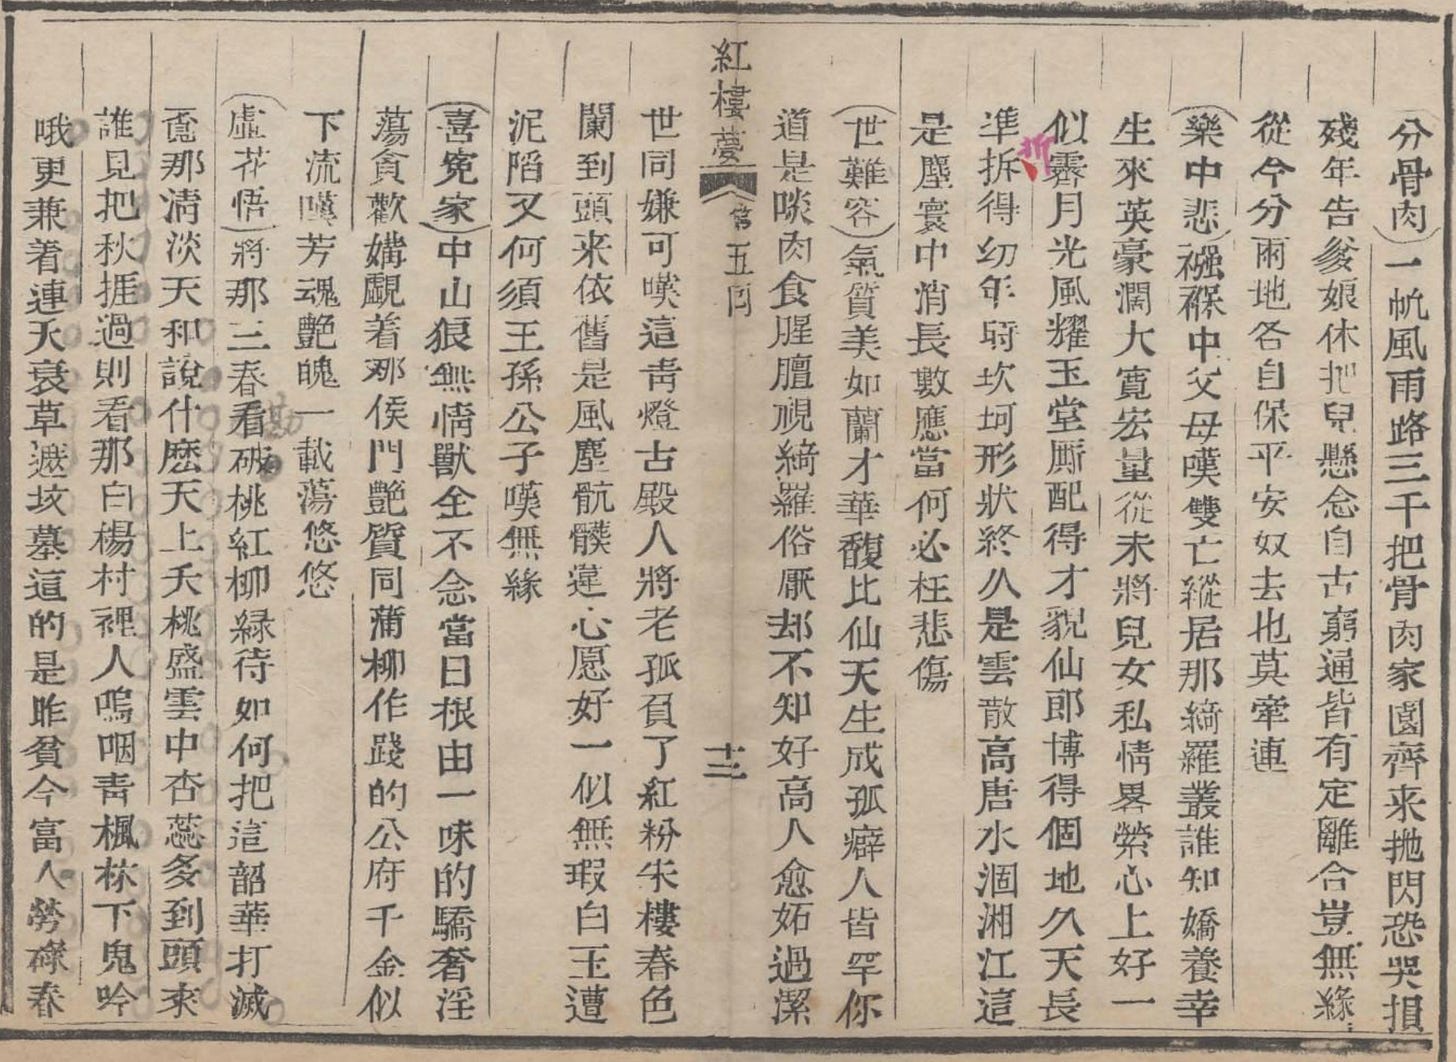 (分骨肉)一帆風雨路三千把骨肉家園齊来抛閃恐哭損
殘年告爹娘休把兒懸念自古窮通皆有定離合豈無緣
從今分兩地各自保平安奴去也莫牽連
(樂中悲)襁褓中父母嘆雙亡縱居那綺羅叢誰知嬌養幸
生來英豪濶大寛宏量從未將兒女私情畧縈心上好一
似霽月光風耀玉堂厮配得才貌仙郎博得個地久天長
準拆得幼年時坎坷形狀終久是雲散高唐水涸湘江這
折
是塵寰中消長數應當何必枉悲傷
(世難容)氣質美如蘭才華馥比仙天生成孤癖人皆罕你
道是啖肉食腥膻視綺羅俗厭却不知好高人愈妬過潔
紅樓夢 第五囘 十三
世同嫌可嘆這青燈古殿人將老孤負了紅粉朱樓春色
闌到頭来依舊是風塵骯髒違心愿好一似無瑕白玉遭
泥陷又何須王孫公子嘆無緣
(喜寃家)中山狼無情獸全不念當日根由一味的驕奢淫
蕩貪歡媾覷着那侯門艷質同蒲柳作踐的公府千金似
下流嘆芳魂艷魄一載蕩悠悠
(虛花悟)將那三春看破桃紅柳緑待如何把這韶華打滅
勘
覔那清淡天和說什麽天上夭桃盛雲中杏蕊多到頭來
誰見把秋捱過則看那白楊村裡人嗚咽青楓林下鬼吟
哦更兼着連天衰草遮坟墓這的是昨貧今富人勞碌春